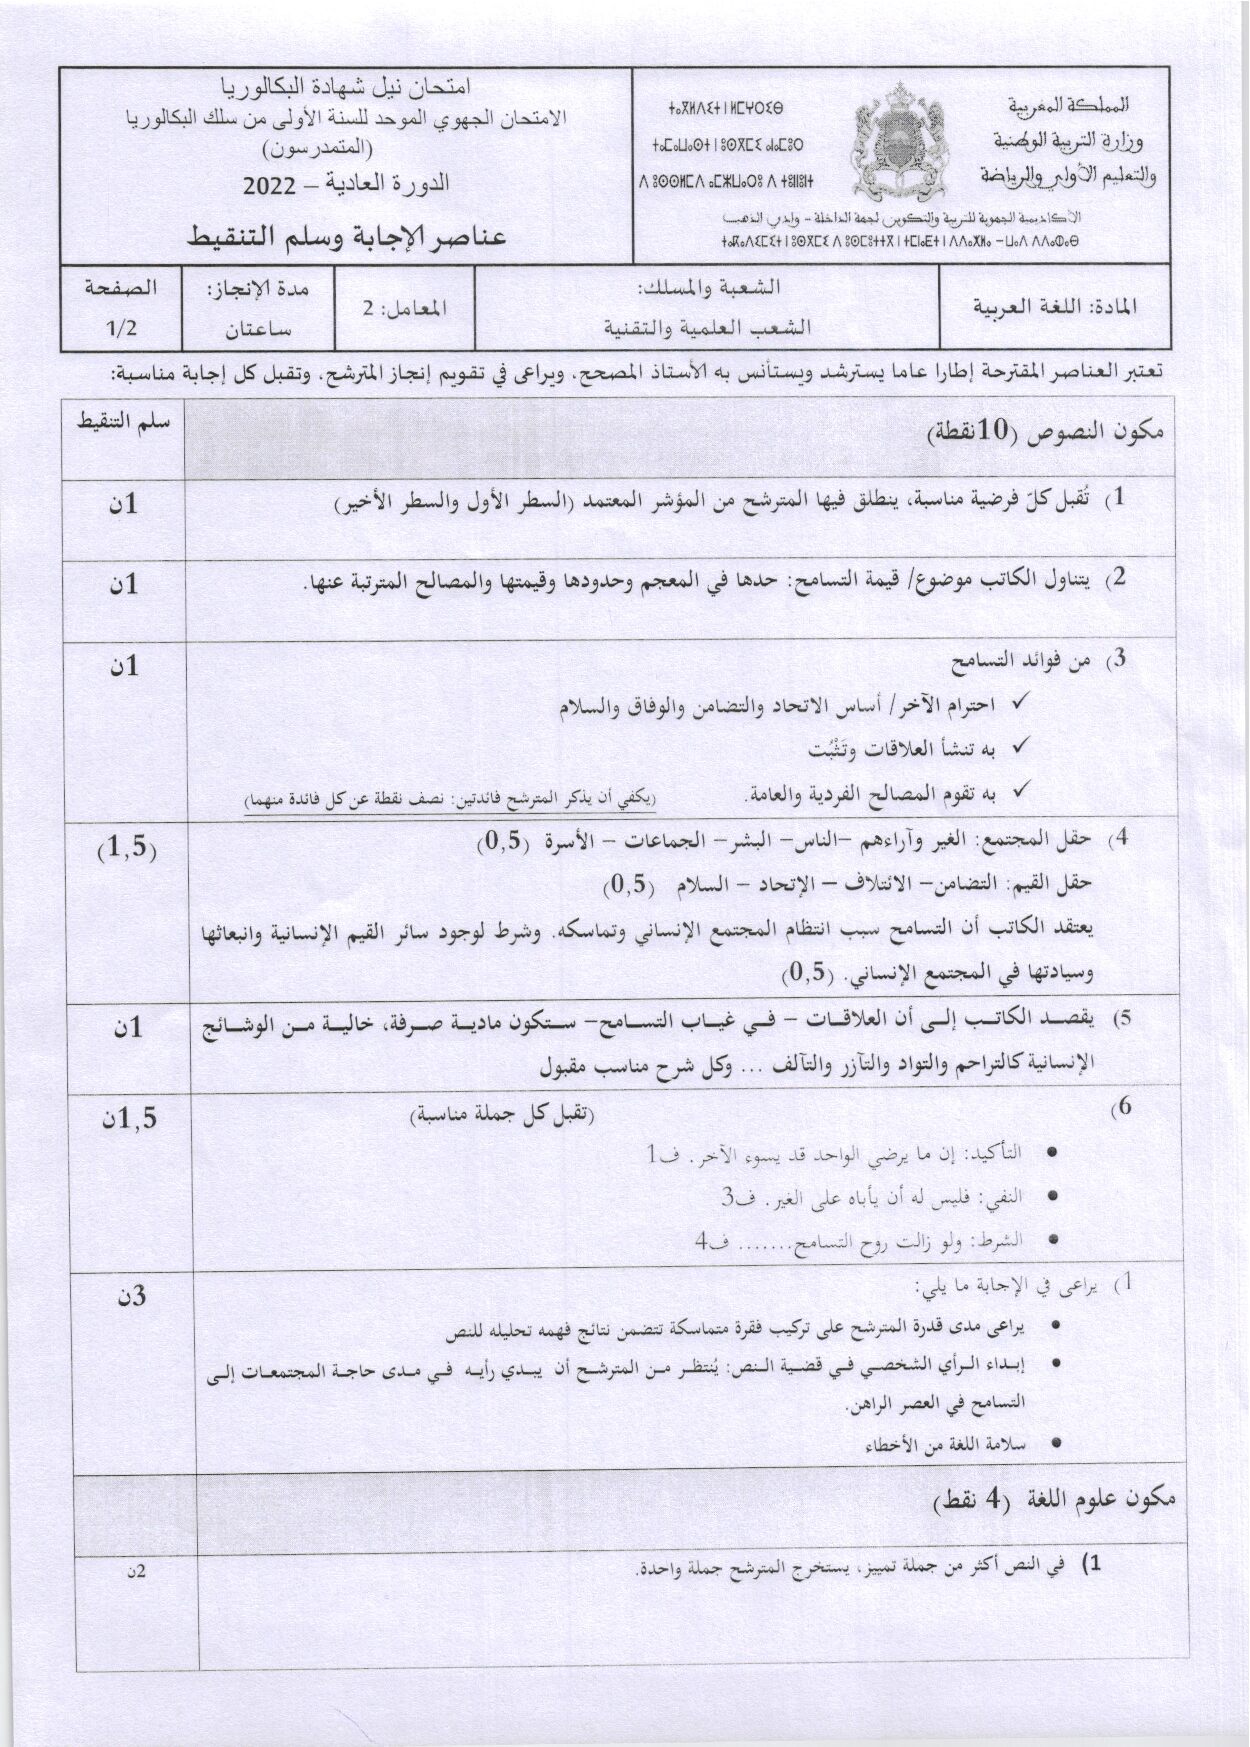 المملكة المغربية
وزارة التربية الوطنية
والتعليم الأولي والرياضة
ⵜⴰⴳⵍⴷⵉⵜ ⵏ ⵍⵎⵖⵔⵉⴱ
ⵜⴰⵎⴰⵡⴰⵙⵜ ⵏ ⵓⵙⴳⵎⵉ ⴰⵏⴰⵎⵓⵔ
ⴷ ⵓⵙⵙⵍⵎⴷ ⴰⵎⵣⵡⴰⵔⵓ ⴷ ⵜⵓⵏⵏⵓⵏⵜ
الأكاديمية الجهوية للتربية والتكوين لجهة الداخلة - وادي الذهب
امتحان نيل شهادة البكالوريا
الامتحان الجهوي الموحد للسنة الأولى من سلك البكالوريا
(المتمدرسون)
الدورة العادية – 2022
عناصر الإجابة وسلم التنقيط
المادة: اللغة العربية
الشعبة والمسلك:
الشعب العلمية والتقنية
المعامل: 2
مدة الإنجاز:
ساعتان
الصفحة
1/2
تعتبر العناصر المقترحة إطارا عاما يسترشد ويستأنس به الأستاذ المصحح، ويراعى في تقويم إنجاز المترشح، وتقبل كل إجابة مناسبة:
مكون النصوص (10نقطة)
سلم التنقيط
1) تُقبل كلّ فرضية مناسبة، ينطلق فيها المترشح من المؤشر المعتمد (السطر الأول والسطر الأخير)
1ن
2) يتناول الكاتب موضوع/ قيمة التسامح: حدها في المعجم وحدودها وقيمتها والمصالح المترتبة عنها.
1ن
3) من فوائد التسامح
1ن
✓ احترام الآخر/ أساس الاتحاد والتضامن والوفاق والسلام
✓ به تنشأ العلاقات وتَثْبُت
✓ به تقوم المصالح الفردية والعامة. (يكفي أن يذكر المترشح فائدتين: نصف نقطة عن كل فائدة منهما)
4) حقل المجتمع: الغير وآراءهم –الناس– البشر– الجماعات – الأسرة (0,5)
(1,5)
حقل القيم: التضامن– الائتلاف – الإتحاد – السلام (0,5)
يعتقد الكاتب أن التسامح سبب انتظام المجتمع الإنساني وتماسكه. وشرط لوجود سائر القيم الإنسانية وانبعاثها
وسيادتها في المجتمع الإنساني. (0,5)
5) يقصد الكاتب إلى أن العلاقات – في غياب التسامح– ستكون مادية صرفة، خالية من الوشائج
1ن
الإنسانية كالتراحم والتواد والتآزر والتآلف ... وكل شرح مناسب مقبول
6) (تقبل كل جملة مناسبة)
1,5ن
• التأكيد: إن ما يرضي الواحد قد يسوء الآخر. ف1
• النفي: فليس له أن يأباه على الغير. ف3
• الشرط: ولو زالت روح التسامح....... ف4
1) يراعى في الإجابة ما يلي:
3ن
• يراعى مدى قدرة المترشح على تركيب فقرة متماسكة تتضمن نتائج فهمه تحليله للنص
• إبداء الرأي الشخصي في قضية النص: يُنتظر من المترشح أن يبدي رأيه في مدى حاجة المجتمعات إلى
التسامح في العصر الراهن.
• سلامة اللغة من الأخطاء
مكون علوم اللغة (4 نقط)
1) في النص أكثر من جملة تمييز، يستخرج المترشح جملة واحدة.
2ن